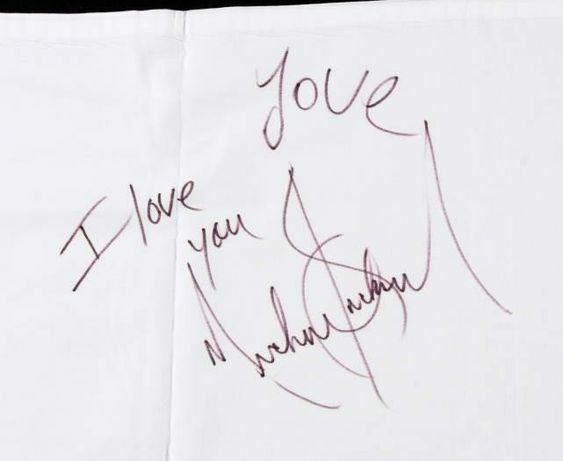 Love
I love
you
Michael Jackson